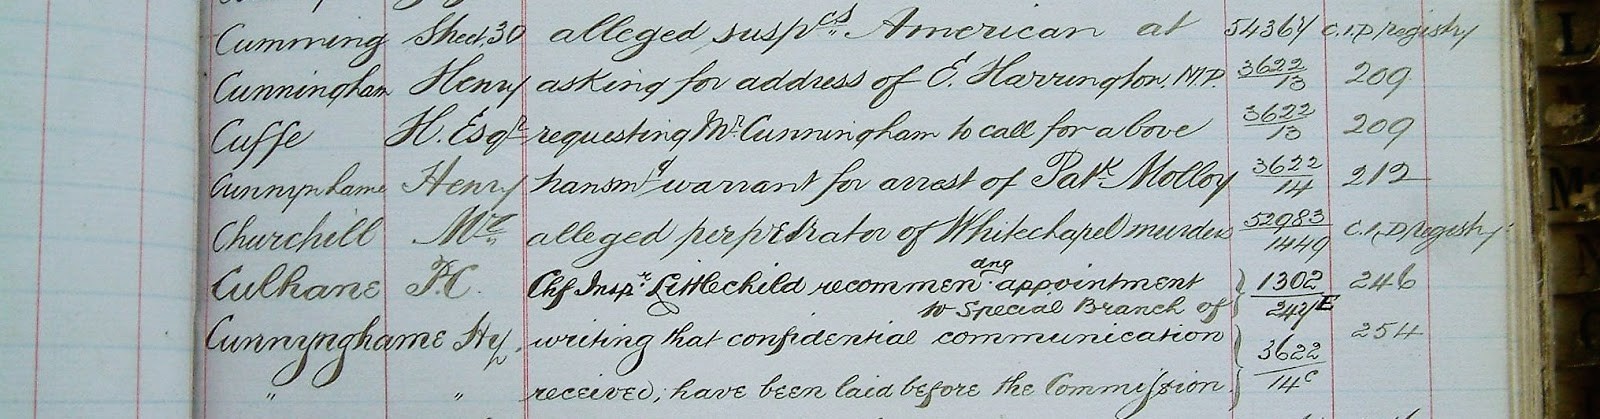 Cumming Sheet 30 alleged suspcs American at 54364 C.I.D registry
Cunningham Henry asking for address of E. Harrington. M.P. 3622/13 209
Cuffe H. Esqr requesting Mr Cunningham to call for above 3622/13 209
Cunnynhame Henry transmg warrant for arrest of Patk Molloy 3622/14 212
Churchill Mr alleged perpetrator of Whitechapel murders 52983/1449 C.I.D registry
Culhane P.C. Chf Inspr Littlechild recommendng appointment 1302 246
to Special Branch of
Cunnynghame Hy. writing that confidential communication 3622 254
" " received, have been laid before the Commission 14c